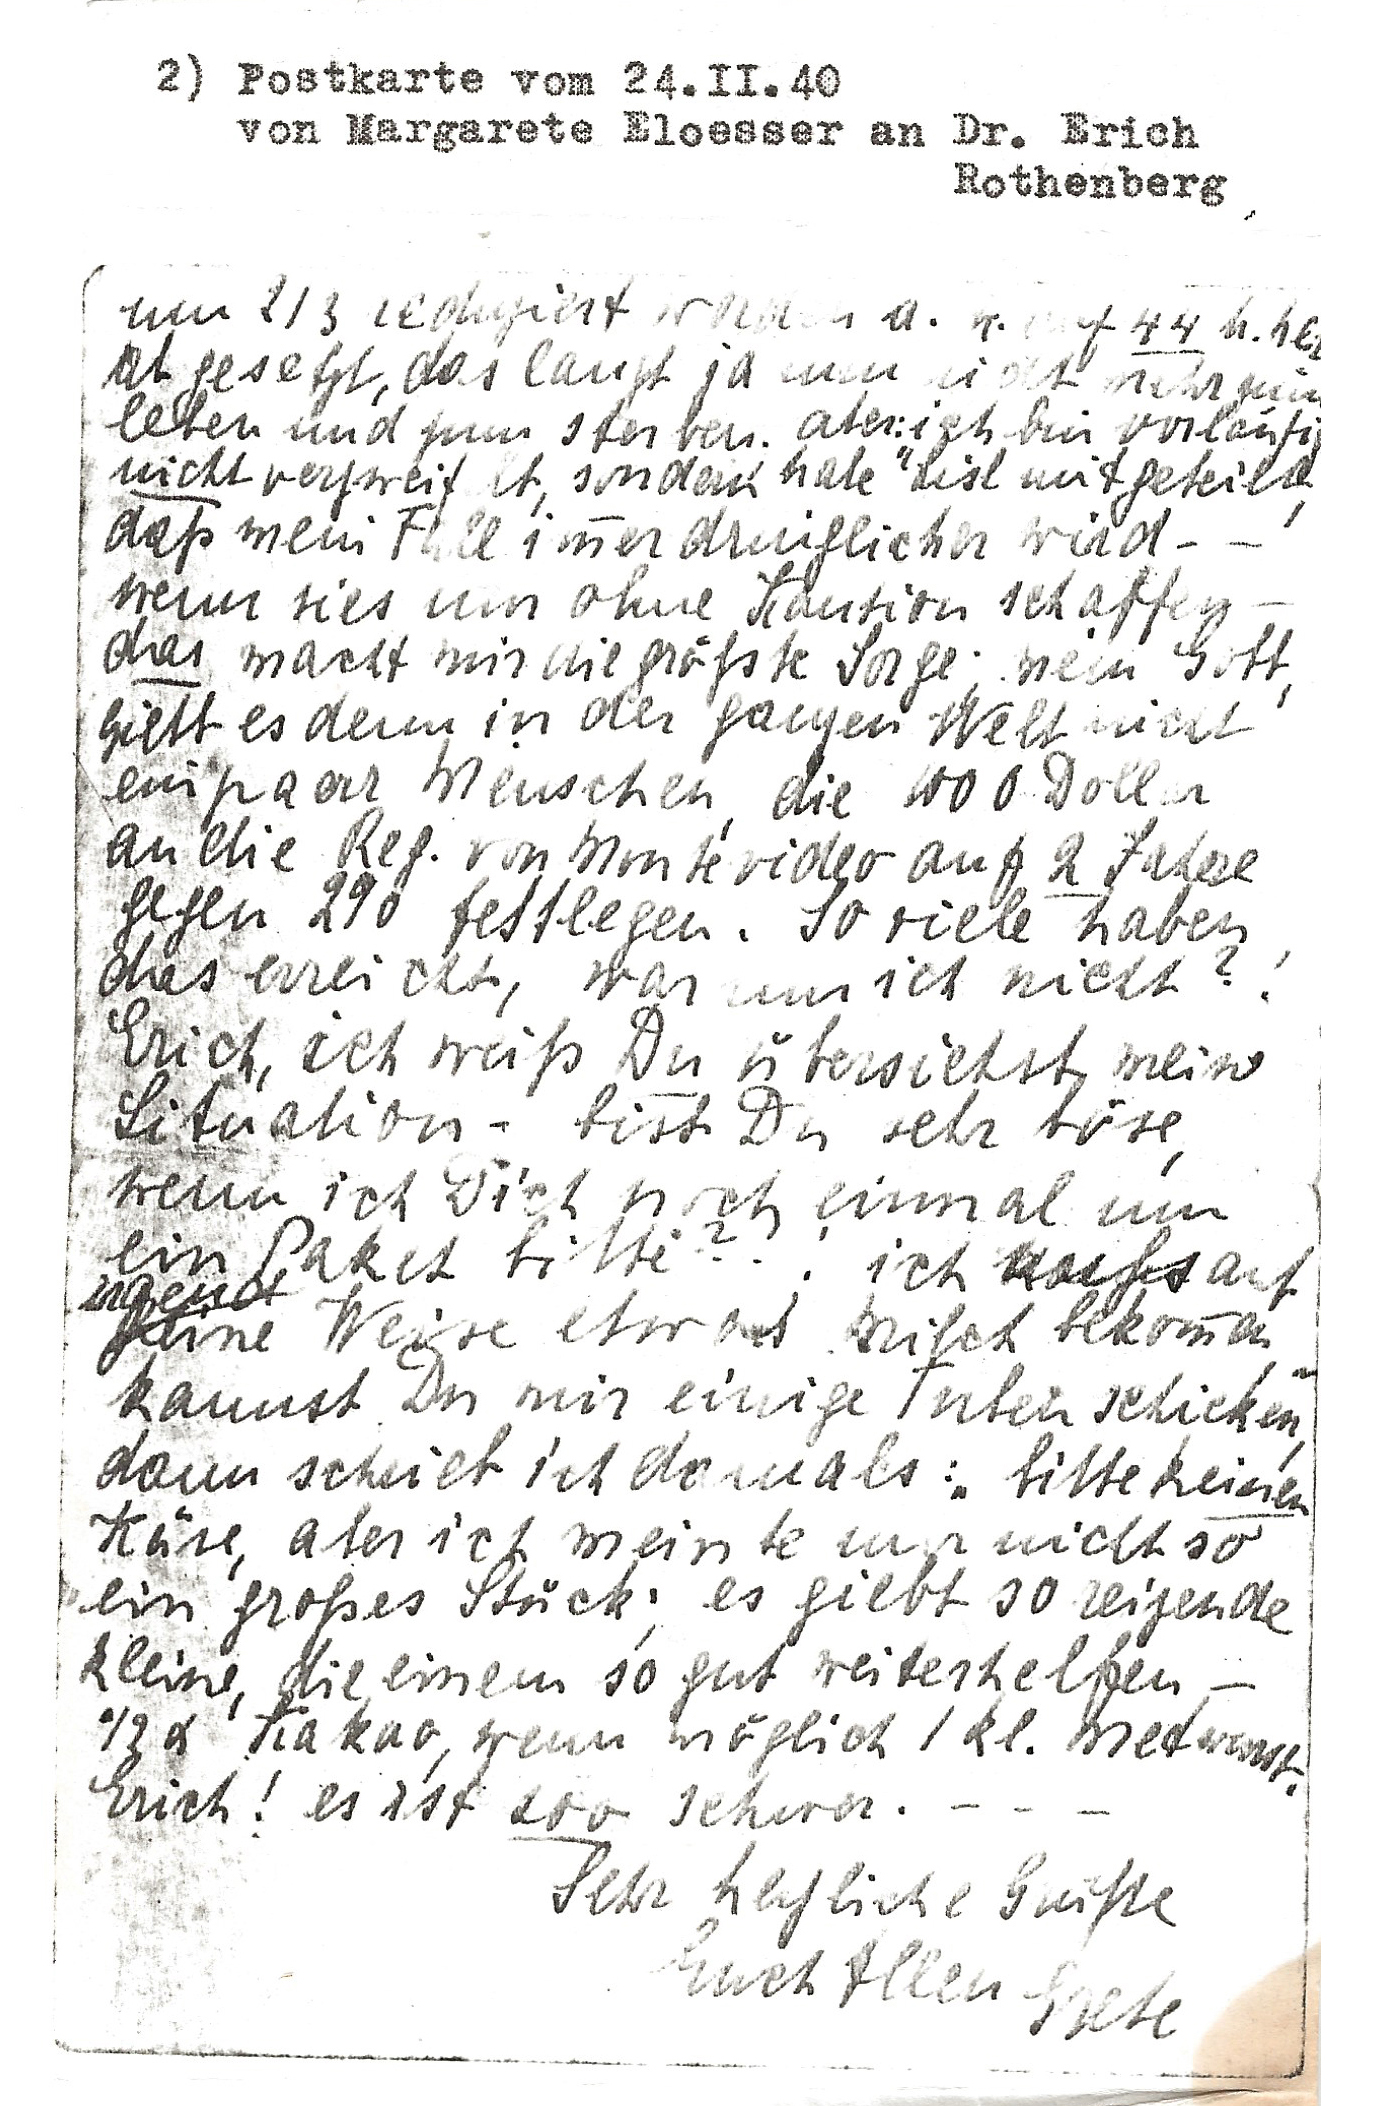 2) Postkarte vom 24.II.40
von Margarete Eloesser an Dr. Erich
Rothenberg
um 2/3 redugiert worden u. auf 44 h. her
ab gesetzt, das langt ja nun nicht mehr zum
leben und zum sterben. aber: ich bin vorläufig
nicht verzweifelt, sondern habe "Lisl mitgeteilt,
daß mein Fall im̅er dringlicher wird - -
wenn sies nur ohne Kaution schaffen -
das macht mir die größte Sorge; mein Gott,
giebt es denn in der ganzen Welt nicht
ein paar Menschen, die 1000 Dollar
an die Reg. von Montevideo auf 2 Jahre
gegen 2% festlegen. So viele haben
das erreicht, warum ich nicht?!
Erich, ich weiß Du übersiehst meine
Situation - bist Du sehr böse,
wenn ich Dich noch einmal um
ein Paket bitte?? ich auf
irgend
eine Weise etwas Milch bekom̅en
kannst Du mir einige Tuben schicken,
dann schrieb ich damals: „bitte keinen
Käse, aber ich meinte nur nicht so
ein großes Stück; es giebt so reizende
kleine, die einem so gut weiterhelfen -
Kakao, wenn möglich 1 kl. Metwurst.
Erich! es ist soo schwer. - - -
Sehr herzliche Grüße
Euch Allen Grete